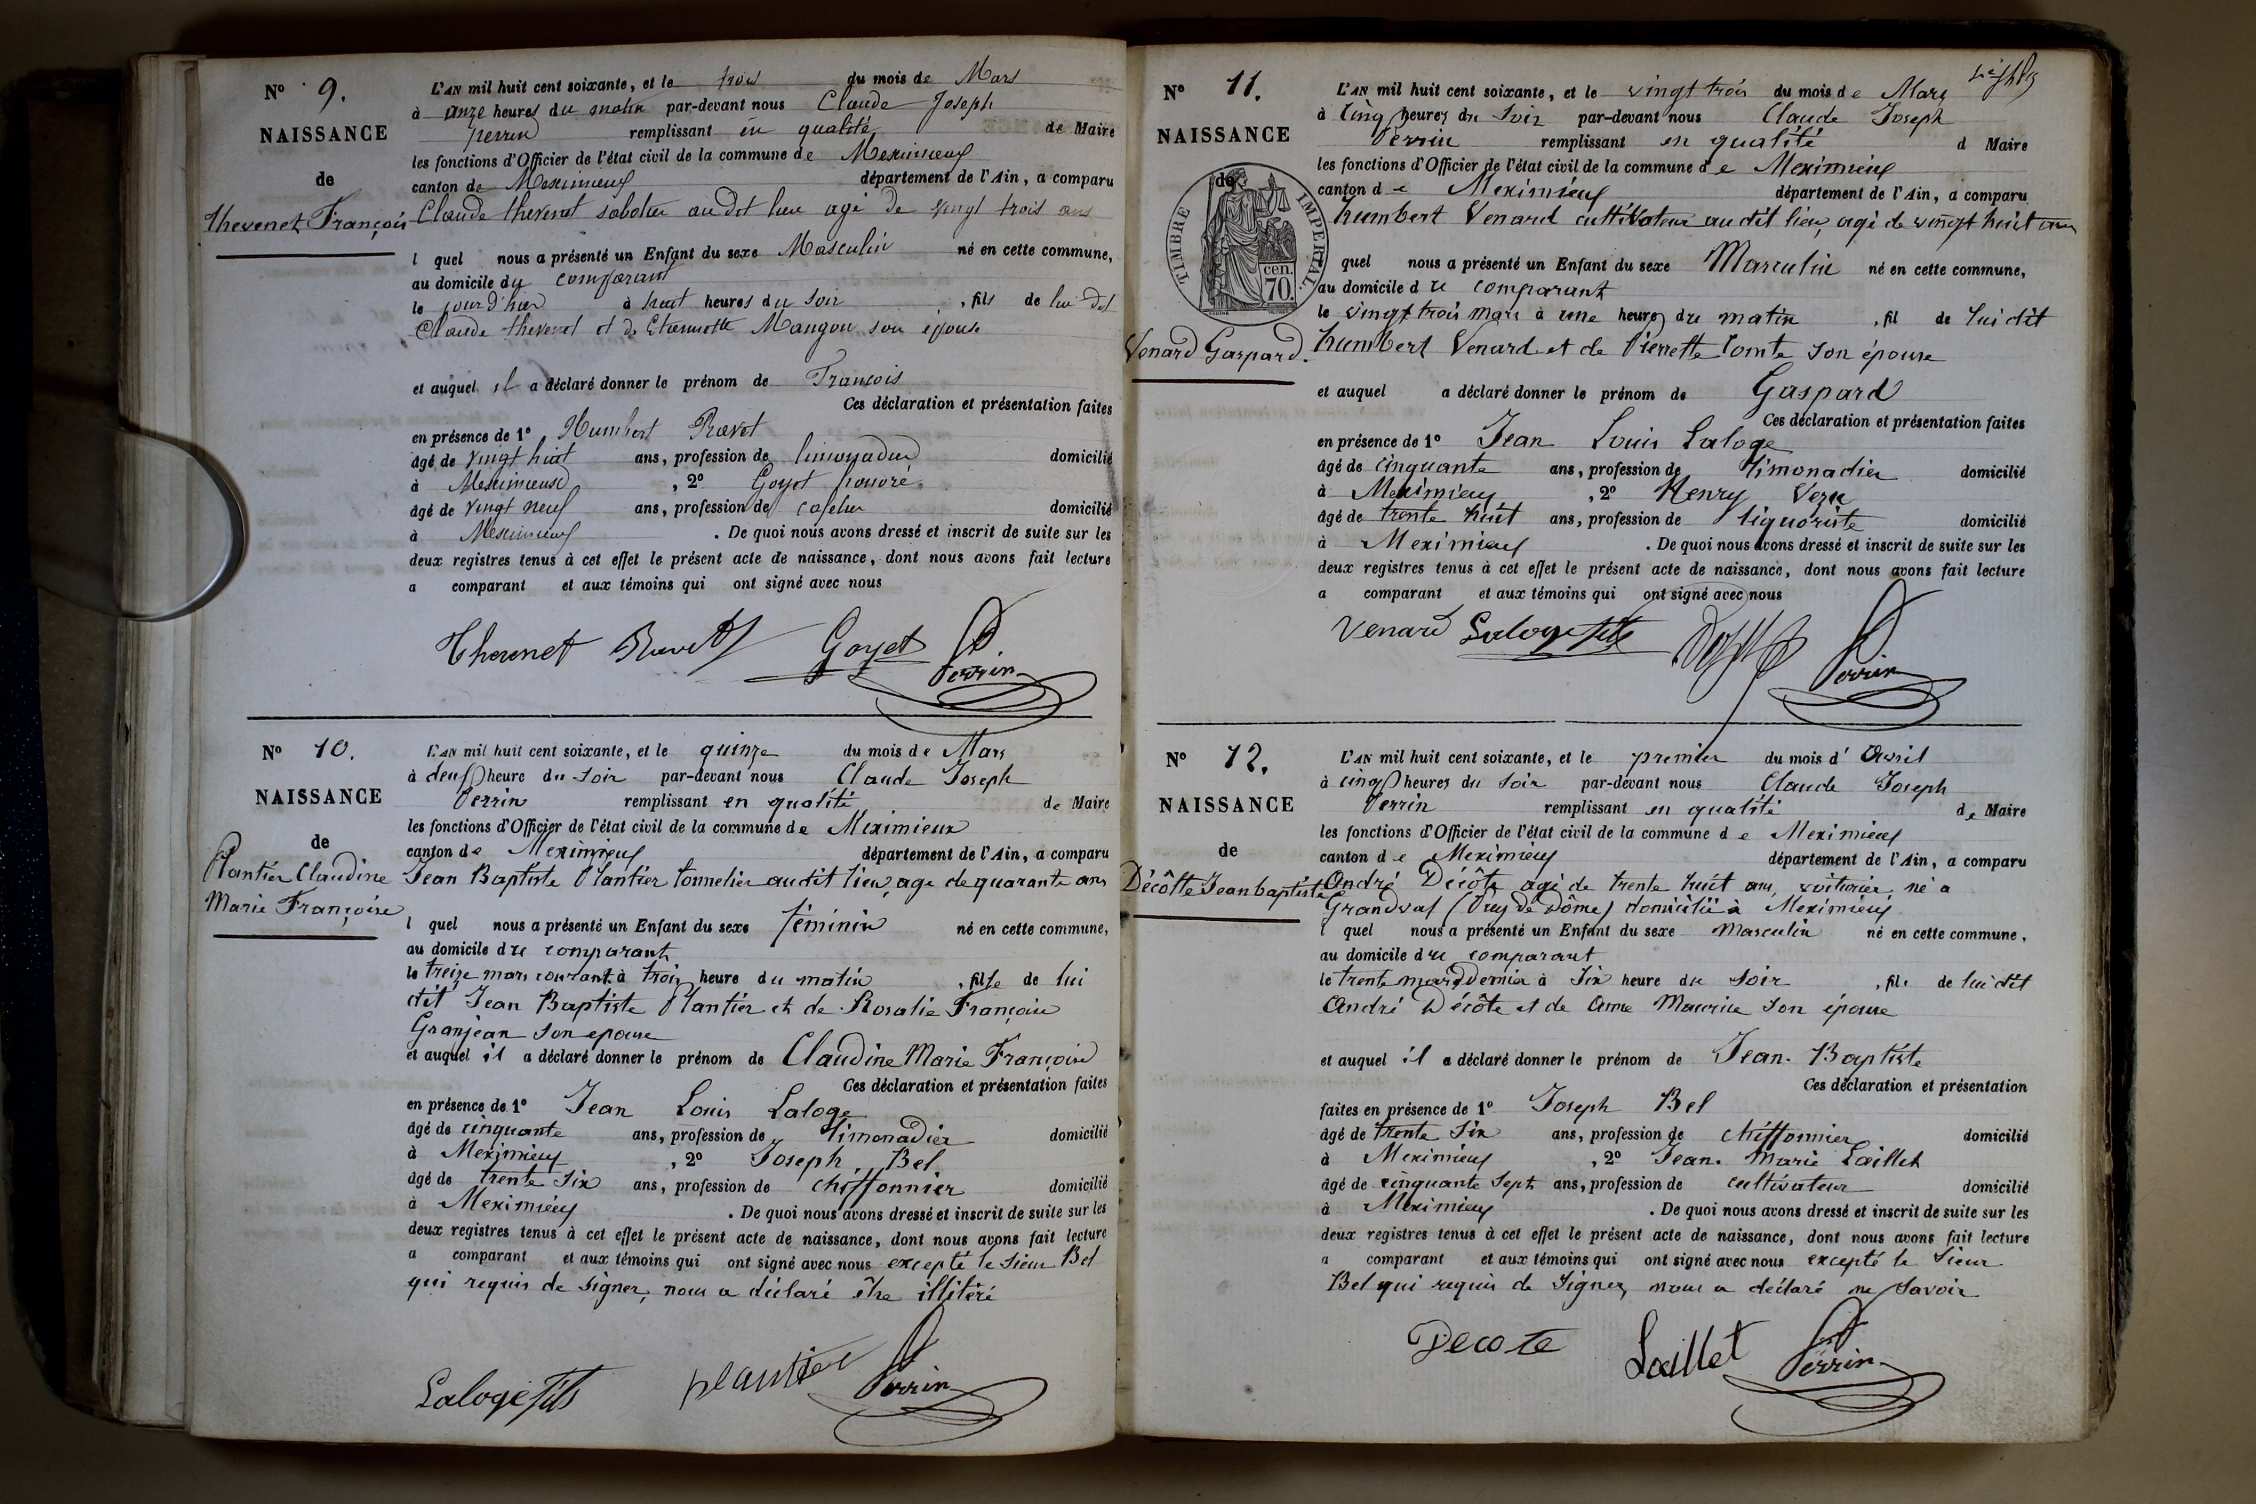 N° 9.
NAISSANCE
de
Thevenet François
L'AN mil huit cent soixante, et le trois du mois de Mars
à onze heures du matin par-devant nous Claude Joseph
Perrin remplissant en qualité de Maire
les fonctions d'Officier de l'état civil de la commune de Meximieux
canton de Meximieux département de l'Ain, a comparu
Claude thevenet sabotier au dit lieu agé de vingt trois ans
l quel nous a présenté un Enfant du sexe Masculin né en cette commune,
au domicile du comparant
le jour d'hier à huit heures du soir , fils de lui dit
Claude thevenet et de Etiennette Mangon son épouse
et auquel il a déclaré donner le prénom de François
Ces déclaration et présentation faites
en présence de 1° Humbert
âgé de vingt huit ans, profession de limonadier domicilié
à Meximieux , 2° Goyet honoré
âgé de vingt neuf ans, profession de domicilié
à Meximieux . De quoi nous avons dressé et inscrit de suite sur les
deux registres tenus à cet effet le présent acte de naissance, dont nous avons fait lecture
a comparant et aux témoins qui ont signé avec nous
Thevenet Goyet Perrin
N° 10.
NAISSANCE
de
Plantier Claudine
Marie Françoise
L'AN mil huit cent soixante, et le quinze du mois de Mars
à deux heure du soir par-devant nous Claude Joseph
Perrin remplissant en qualité de Maire
les fonctions d'Officier de l'état civil de la commune de Meximieux
canton de Meximieux département de l'Ain, a comparu
Jean Baptiste Plantier tonnelier audit lieu, age de quarante ans
l quel nous a présenté un Enfant du sexe féminin né en cette commune,
au domicile du comparant
le treize mars courant à trois heure du matin , fille de lui
dit Jean Baptiste Plantier et de Rosalie Françoise
Granjean son epouse
et auquel il a déclaré donner le prénom de Claudine Marie Françoise
Ces déclaration et présentation faites
en présence de 1° Jean Louis Laloge
âgé de cinquante ans, profession de limonadier domicilié
à Meximieux , 2° Joseph Bel
âgé de trente six ans, profession de chiffonnier domicilié
à Meximieux . De quoi nous avons dressé et inscrit de suite sur les
deux registres tenus à cet effet le présent acte de naissance, dont nous avons fait lecture
a comparant et aux témoins qui ont signé avec nous excepté le sieur Bel
qui requis de signer, nous a déclaré être illitéré
Laloge fils plantier Perrin
N° 11.
NAISSANCE
de
TIMBRE IMPERIAL
cen.
70.
Venard Gaspard.
L'AN mil huit cent soixante, et le vingt trois du mois de Mars
à cinq heures du soir par-devant nous Claude Joseph
Perrin remplissant en qualité d Maire
les fonctions d'Officier de l'état civil de la commune de Meximieux
canton de Meximieux département de l'Ain, a comparu
humbert Venard cultivateur au dit lieu, agé de vingt huit ans
quel nous a présenté un Enfant du sexe Masculin né en cette commune,
au domicile du comparant
le vingt trois mars à une heures du matin , fil de lui dit
humbert Venard et de Pierrette Comte son épouse
et auquel a déclaré donner le prénom de Gaspard
Ces déclaration et présentation faites
en présence de 1° Jean Louis Laloge
âgé de cinquante ans, profession de limonadier domicilié
à Meximieux , 2° Henry
âgé de trente huit ans, profession de liquoriste domicilié
à Meximieux . De quoi nous avons dressé et inscrit de suite sur les
deux registres tenus à cet effet le présent acte de naissance, dont nous avons fait lecture
a comparant et aux témoins qui ont signé avec nous
Venard Laloge fils Perrin
N° 12.
NAISSANCE
de
Décôte Jean baptiste
L'AN mil huit cent soixante, et le premier du mois d' avril
à cinq heures du soir par-devant nous Claude Joseph
Perrin remplissant en qualité de Maire
les fonctions d'Officier de l'état civil de la commune de Meximieux
canton de Meximieux département de l'Ain, a comparu
André Décôte agé de trente huit ans, voiturier né a
Grandval (Puy de Dôme) domicilié à Meximieux
l quel nous a présenté un Enfant du sexe masculin né en cette commune,
au domicile du comparant
le trente mars dernier à six heure du soir , fils de lui dit
André Décôte et de anne Maurice son épouse
et auquel il a déclaré donner le prénom de Jean-Baptiste
Ces déclaration et présentation
faites en présence de 1° Joseph Bel
âgé de trente six ans, profession de chiffonnier domicilié
à Meximieux , 2° Jean-Marie Laillet
âgé de cinquante sept ans, profession de cultivateur domicilié
à Meximieux . De quoi nous avons dressé et inscrit de suite sur les
deux registres tenus à cet effet le présent acte de naissance, dont nous avons fait lecture
a comparant et aux témoins qui ont signé avec nous excepté le sieur
Bel qui requis de signer, nous a déclaré ne savoir
Decote Laillet Perrin